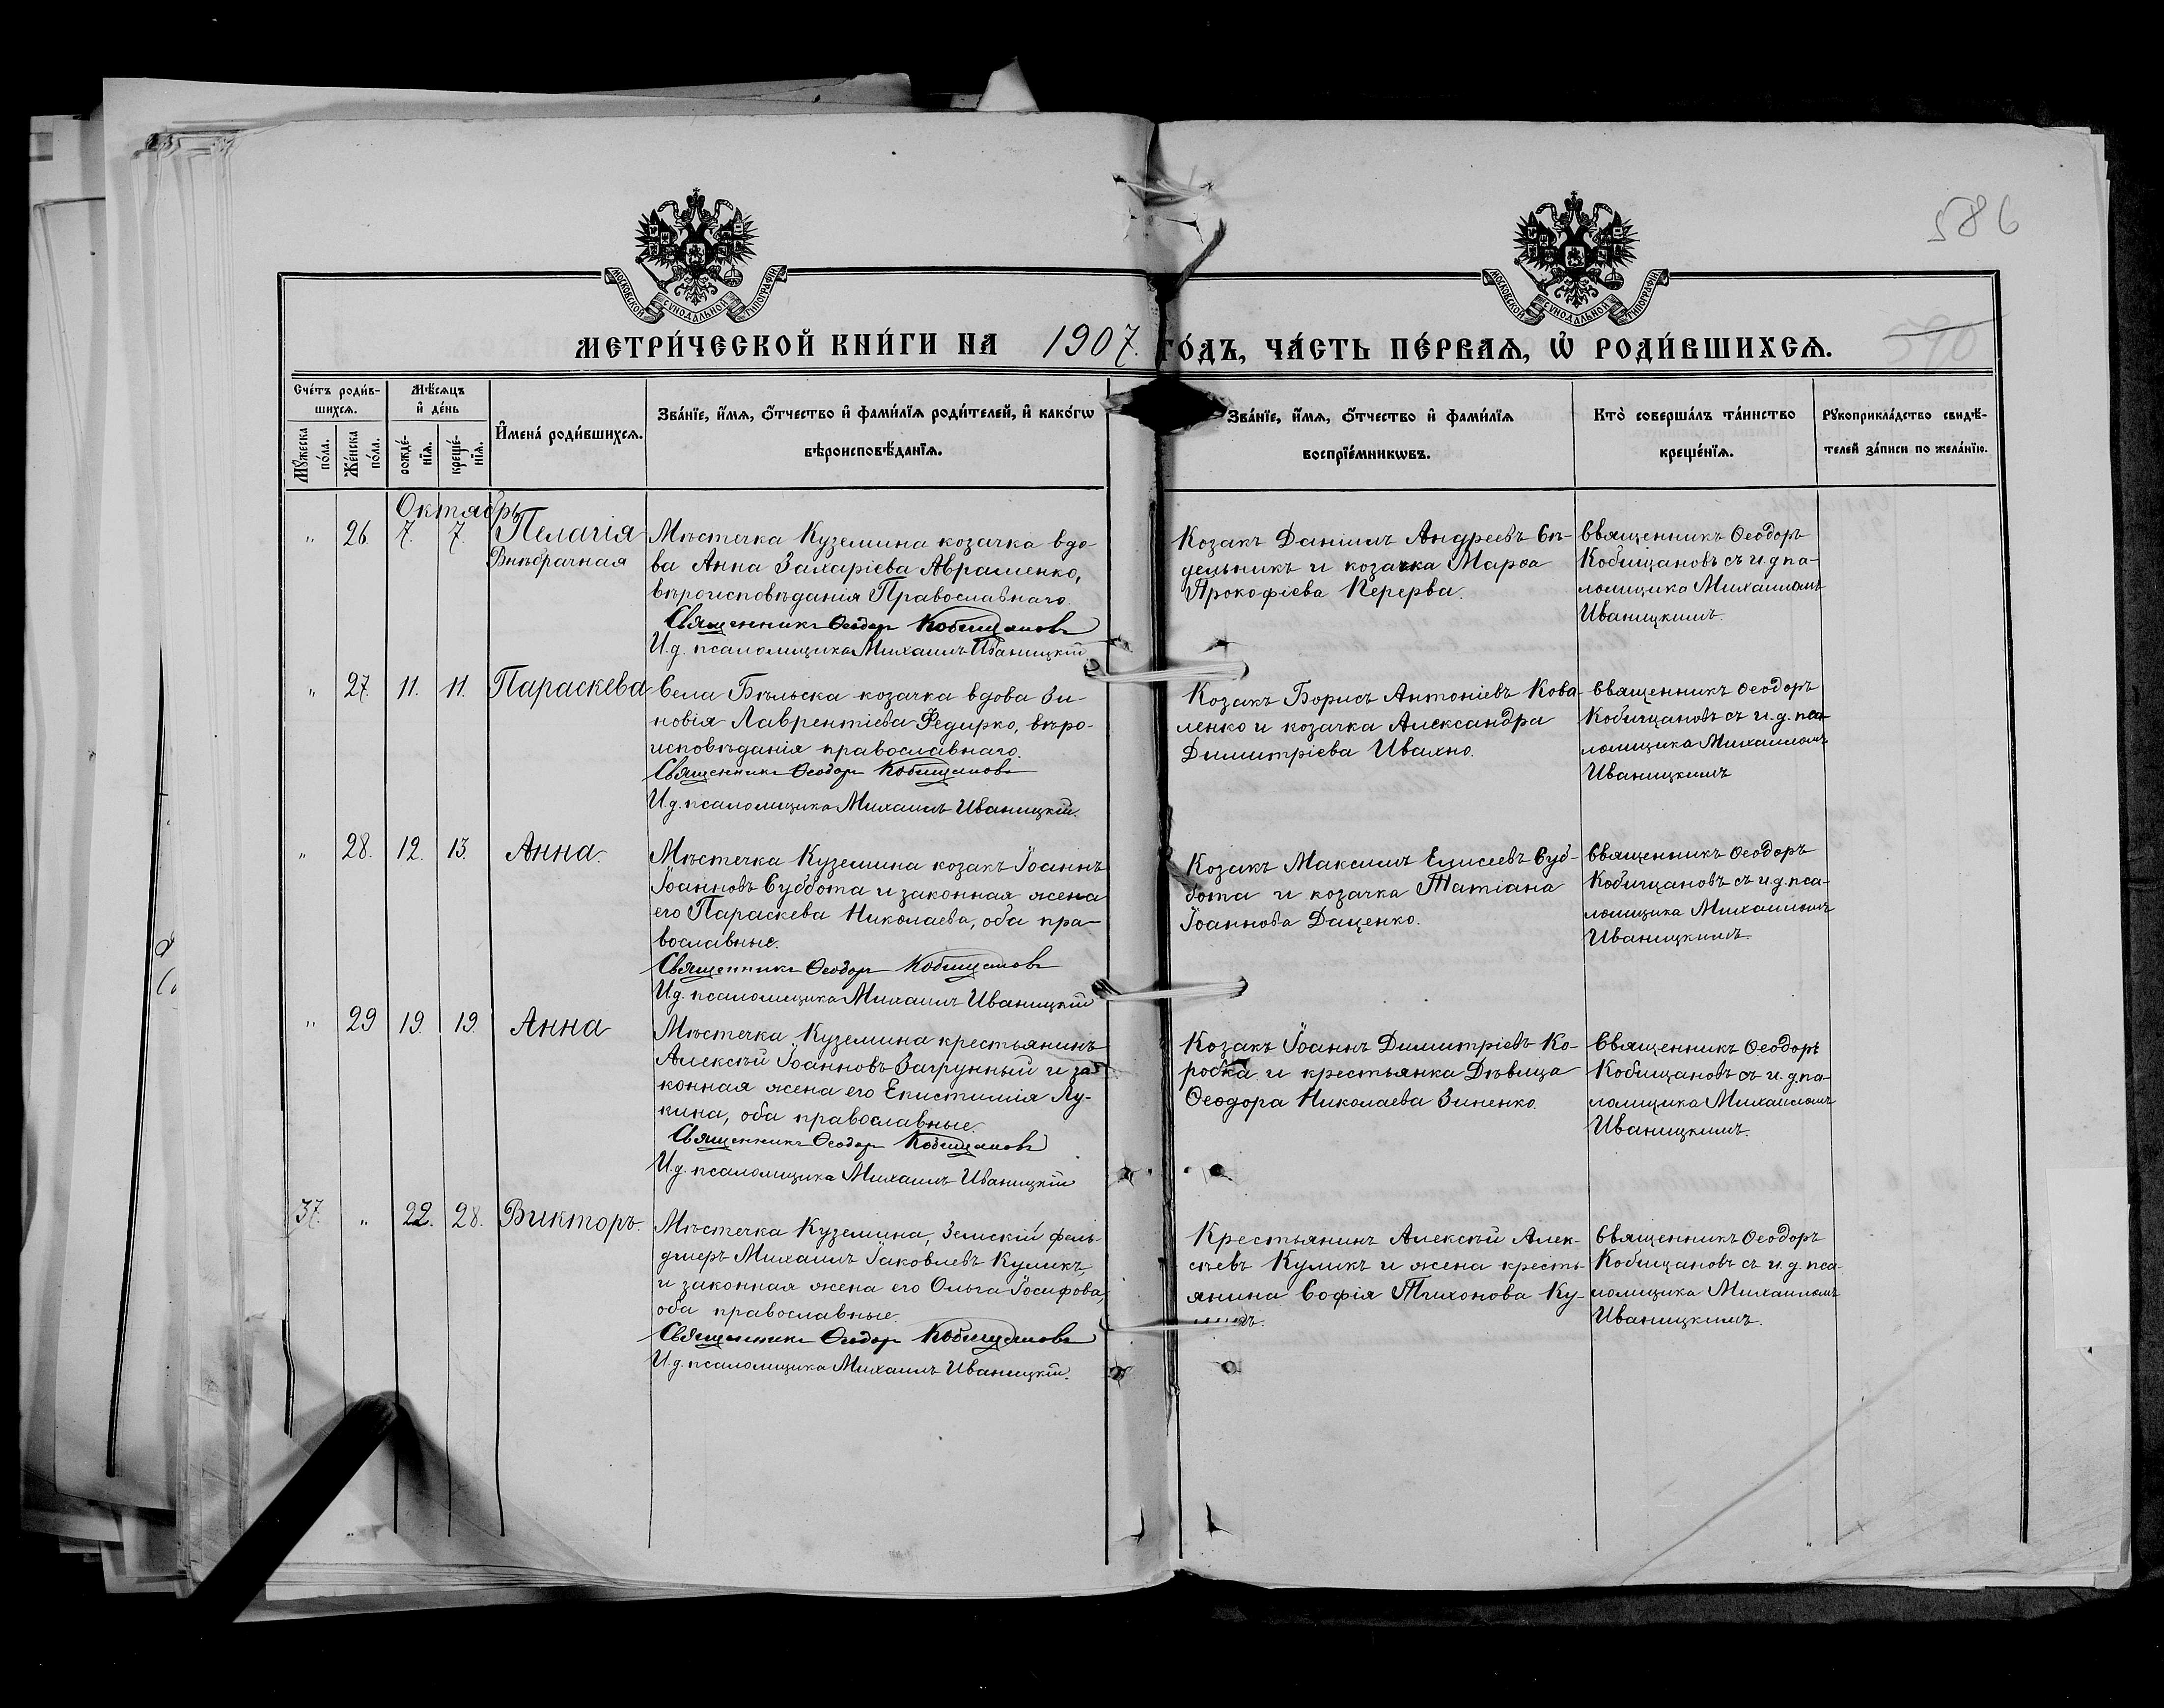 586
МОСКОВСКОЙ СѴНОДАЛЬНОЙ ТИПОГРАФІИ
МОСКОВСКОЙ СѴНОДАЛЬНОЙ ТИПОГРАФІИ
МЕТРИ́ЧЕСКОЙ КНИ́ГИ НА 1907. ГО́ДЪ, ЧА́СТЬ ПЕ́РВАѦ, Ѡ҆ РОДИ́ВШИХСѦ.
590
Сче́тъ роди́в-
шихсѧ.
Мꙋ́жеска
по́ла.
Же́нска
по́ла.
Мѣ́сѧцъ
и҆ де́нь
рожде́-
нїѧ.
креще́-
нїѧ.
И҆мена̀ роди́вшихсѧ.
Зва́нїе, и҆́мѧ, ѻ҆́тчество и҆ фами́лїѧ роди́телей, и҆ како́гѡ
вѣроисповѣ́данїѧ.
Зва́нїе, и҆́мѧ, ѻ҆́тчество и҆ фами́лїѧ
воспрїе́мникѡвъ.
Кто̀ соверша́лъ та́инство
креще́нїѧ.
Рꙋкоприкла́дство свидѣ́-
телей за́писи по жела́нїю.
Октябрь
„ 26. 7. 7. Пелагія
Внѣбрачная
Мѣстечка Куземина козачка вдо-
ва Анна Захаріева Авраменко,
вѣроисповѣданія Православнаго.
Священникъ Ѳеодоръ Кобищановъ
И.д. псаломщика Михаилъ Иваницкій
Козакъ Даніилъ Андреевъ Сѣ-
дельникъ и козачка Марѳа
Прокофіева Перерва.
Священникъ Ѳеодоръ
Кобищановъ съ и.д. пса-
ломщика Михаиломъ
Иваницкимъ.
„ 27. 11. 11. Параскева
Села Бѣльска козачка вдова Зи-
новія Лаврентіева Федирко, вѣро-
исповѣданія православнаго.
Священникъ Ѳеодоръ Кобищановъ
И.д. псаломщика Михаилъ Иваницкій.
Козакъ Борисъ Антоніевъ Кова-
ленко и козачка Александра
Димитріева Ивахно.
Священникъ Ѳеодоръ
Кобищановъ съ и.д. пса-
ломщика Михаиломъ
Иваницкимъ
„ 28. 12. 13. Анна.
Мѣстечка Куземина козакъ Іоаннъ
Іоанновъ Суббота и законная жена
его Параскева Николаева, оба пра-
вославные.
Священникъ Ѳеодоръ Кобищановъ
И.д. псаломщика Михаилъ Иваницкій
Козакъ Максимъ Елисеевъ Суб-
бота и козачка Татіана
Іоаннова Даценко.
Священникъ Ѳеодоръ
Кобищановъ съ и.д. пса-
ломщика Михаиломъ
Иваницкимъ.
„ 29 19. 19. Анна
Мѣстечка Куземина крестьянинъ
Алексѣй Іоанновъ Загрунный и за-
конная жена его Епистимія Лу-
кина, оба православные.
Священникъ Ѳеодоръ Кобищановъ
И.д. псаломщика Михаилъ Иваницкій
Козакъ Іоаннъ Димитріевъ Ко-
робка и крестьянка Дѣвица
Ѳеодора Николаева Зиненко.
Священникъ Ѳеодоръ
Кобищановъ съ и.д. пса-
ломщика Михаиломъ
Иваницкимъ.
37. „ 22. 28. Викторъ.
Мѣстечка Куземина, Земскій фель-
дшеръ Михаилъ Іаковлевъ Куликъ
и законная жена его Ольга Іосифова,
оба православные.
Священникъ Ѳеодоръ Кобищановъ
И.д. псаломщика Михаилъ Иваницкій.
Крестьянинъ Алексѣй Алек-
сѣевъ Куликъ и жена кресть-
янина Софія Тихонова Ку-
Священникъ Ѳеодоръ
Кобищановъ съ и.д. пса-
ломщика Михаиломъ
Иваницкимъ.